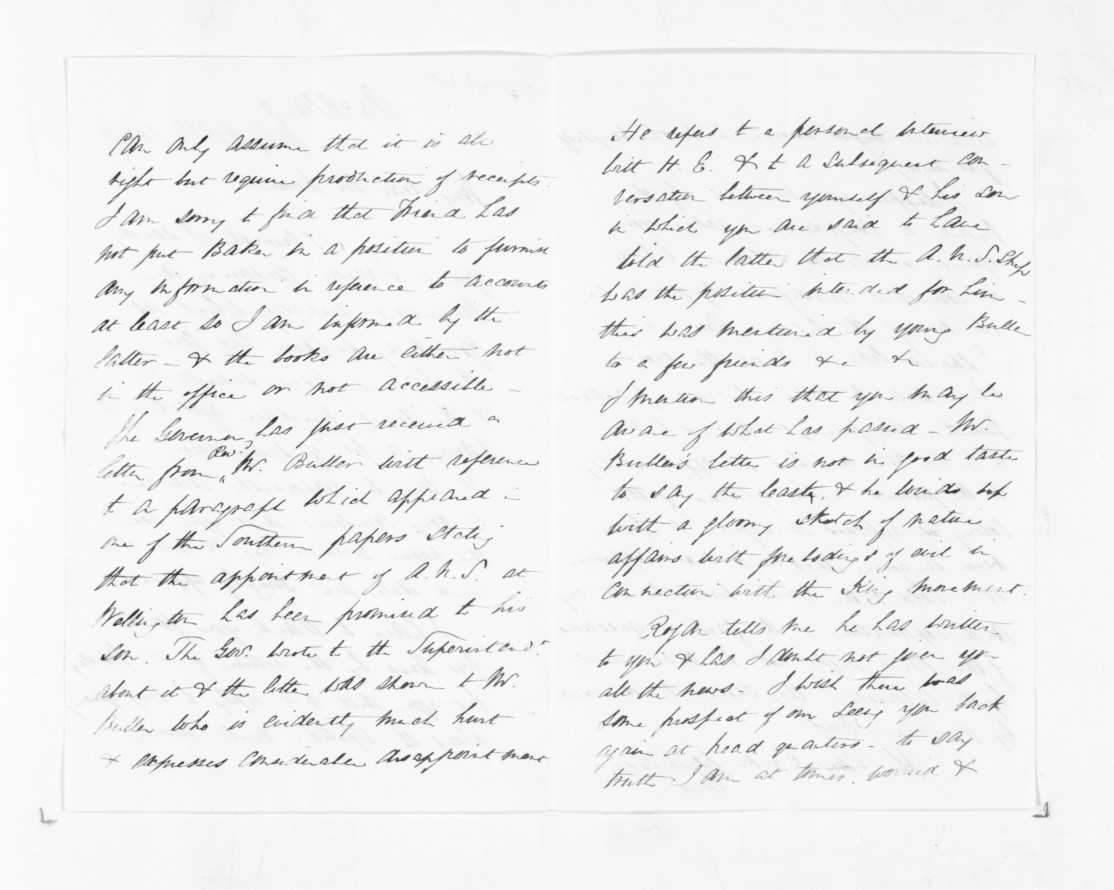 Can only assume that it is all
right but require production of receipts.
I am sorry to find that Friend has
not put Baker in a position to furnish
any information in reference to accounts
at least so I am informed by the
latter - & the books are either not
in the office or not accessible -
The Governor has just received a
letter from Revd. Mr. Buller with reference
to a paragraph which appeared in
one of the Southern papers stating
that the appointment of A.N.S. at
Wellington has been promised to his
son. The Govr. wrote to the Superintendt.
about it & the letter was shown to Mr.
Buller who is evidently much hurt
& expresses considerable disappointment
He refers to a personal interview
with H. E. & to a subsequent con-
versation between yourself & his son
in which you are said to have
told the latter that the A.N.S. Ship
was the position intended for him -
this was mentioned by young Buller
to a few friends &c &c
I mention this that you may be
aware of what has passed - Mr.
Buller's letter is not in good taste
to say the least, & he winds up
with a gloomy sketch of native
affairs with forebodings of evil in
connection with the King movement.
Rogan tells me he has written
to you & has I doubt not given you
all the news - I wish there was
some prospect of our seeing you back
again at head quarters - to say
truth I am at times worried &